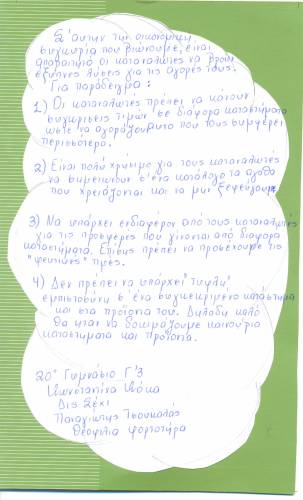 Σ' αυτήν την οικονομική
συγκυρία που βιώνουμε, είναι
απαραίτητο οι καταναλωτές να βρουν
έξυπνες λύσεις για τις αγορές τους.
Για παράδειγμα:
1) Οι καταναλωτές πρέπει να κάνουν
συγκρίσεις τιμών σε διάφορα καταστήματα
ώστε να αγοράζουν αυτό που τους συμφέρει
περισσότερο.
2) Είναι πολύ χρήσιμο για τους καταναλωτές
να σημειώνουν σ' ένα κατάλογο τα αγαθά
που χρειάζονται και να μην ξεφεύγουν.
3) Να υπάρχει ενδιαφέρον από τους καταναλωτές
για τις προσφορές που γίνονται από διάφορα
καταστήματα. Επίσης πρέπει να προσέχουμε τις
"φαινομ" τιμές.
4) Δεν πρέπει να υπάρχει "τυφλή"
εμπιστοσύνη σ' ένα συγκεκριμένο κατάστημα
και στα προϊόντα του. Δηλαδή καλό
θα ήταν να δοκιμάζουμε καινούρια
καταστήματα και προϊόντα.
20° Γυμνάσιο Γ'3
Κωνσταντίνα
Παναγιώτης Τσουκαλάς
Θεοφιλία